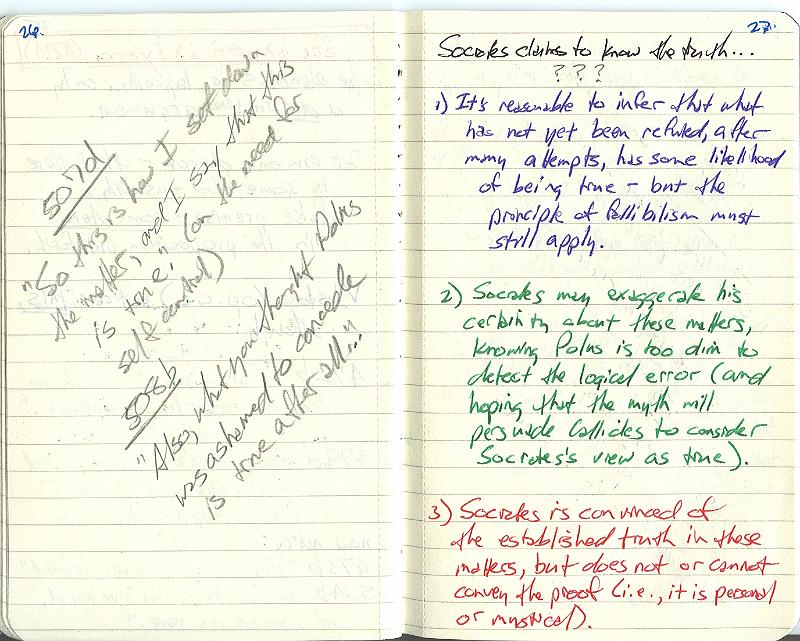 26.
507d
"So this is how I set down
the matter, and I say that this
is true." (on the need for
self control)
508b
"Also, what you thought Polus
was ashamed to concede
is true after all..."
27.
Socrates claims to know the truth...
? ? ?
1) It's reasonable to infer that what
has not yet been refuted, after
many attempts, has some likelihood
of being true – but the
principle of fallibilism must
still apply.
2) Socrates may exaggerate his
certainty about these matters,
knowing Polus is too dim to
detect the logical error (and
hoping that the myth will
persuade Callicles to consider
Socrates's view as true).
3) Socrates is convinced of
the established truth in these
matters, but does not or cannot
convey the proof (i.e., it is personal
or mystical).